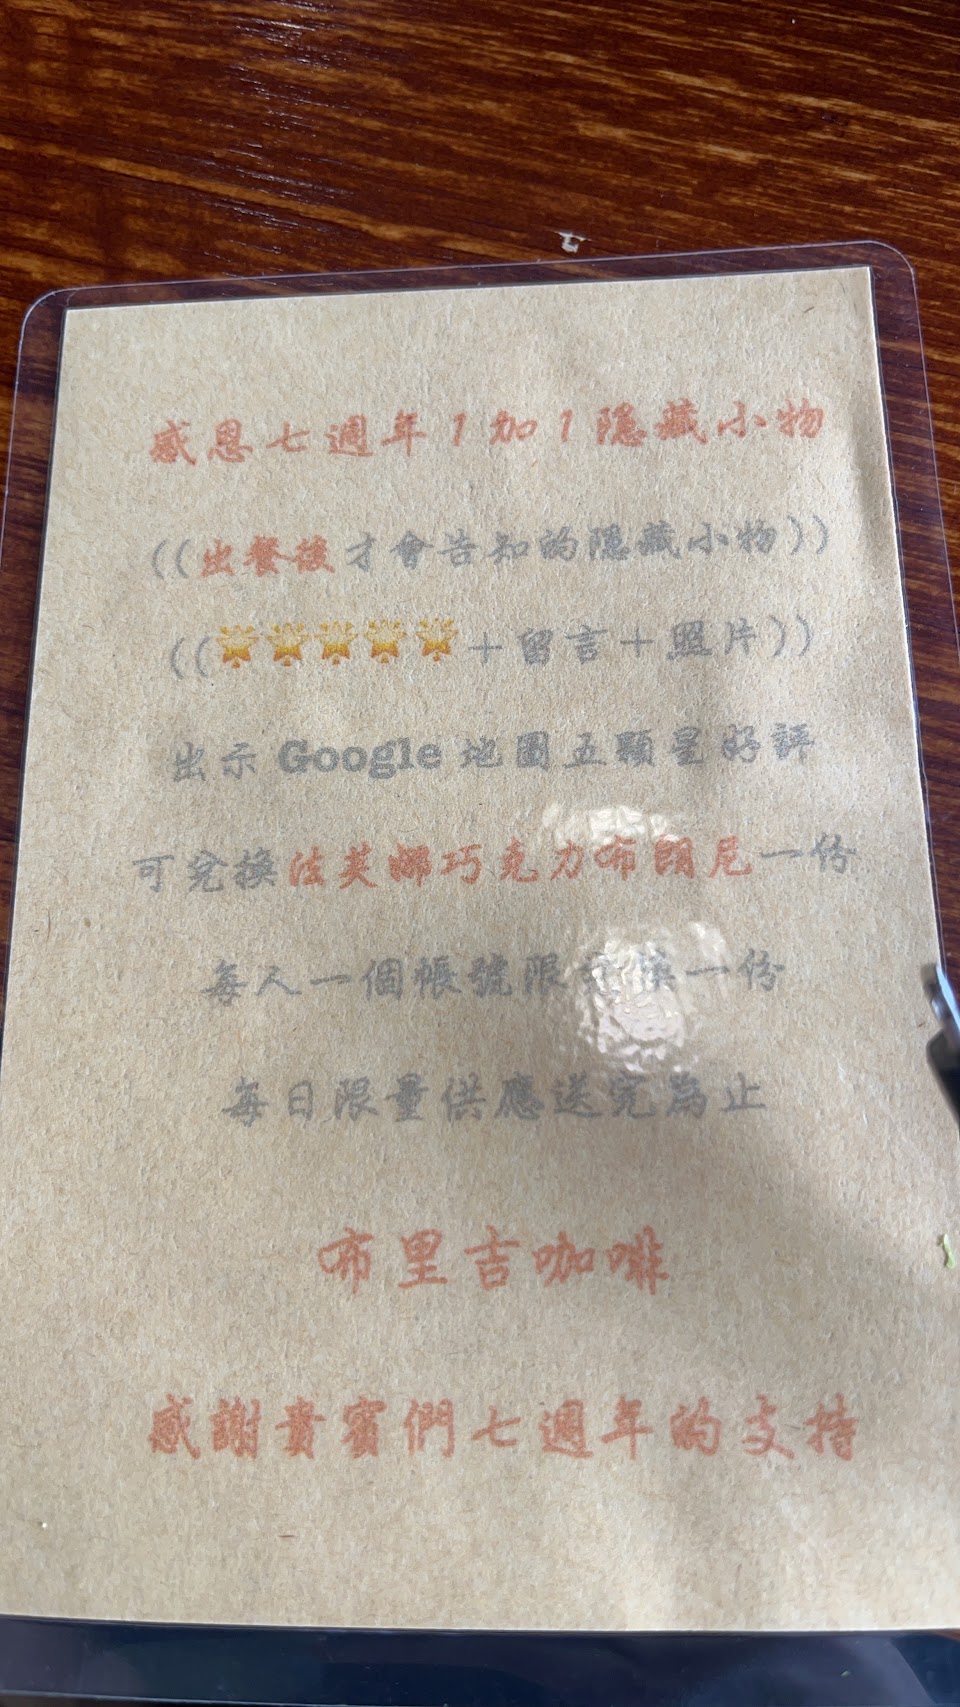 感恩七週年1加1隱藏小物
((出餐後才會告知的隱藏小物))
((🌟🌟🌟🌟🌟+留言+照片))
出示Google地圖五顆星好評
可兌換法芙娜巧克力布朗尼一份
每人一個帳號限兌換一份
每日限量供應送完為止
布里吉咖啡
感謝貴賓們七週年的支持